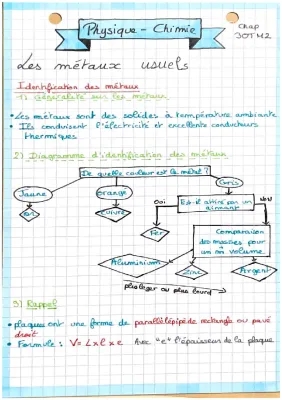 Physique - Chimie
Chap
3OTM2
Les métaux usuels
Identification des métaux
1) Généralité sur les métaux
• Les métaux sont des solides à température ambiante
• Ils conduisent l'électricité et excellents conducteurs
thermiques
2) Diagramme d'identification des métaux
De quelle couleur est le métal?
Jaune
Orange
Gris
Or
Cuivre
Oui
Est-il attiré par un
aimant
Non
Fer
Comparaison
des masses pour
un m̂ volume
Aluminium
Zinc
Argent
plus léger ou plus lourd
3) Rappel
• plaque ont une forme de parallélépipède rectangle ou pavé
droit
• Formule : V = L x l x e Avec "e" l'épaisseur de la plaque